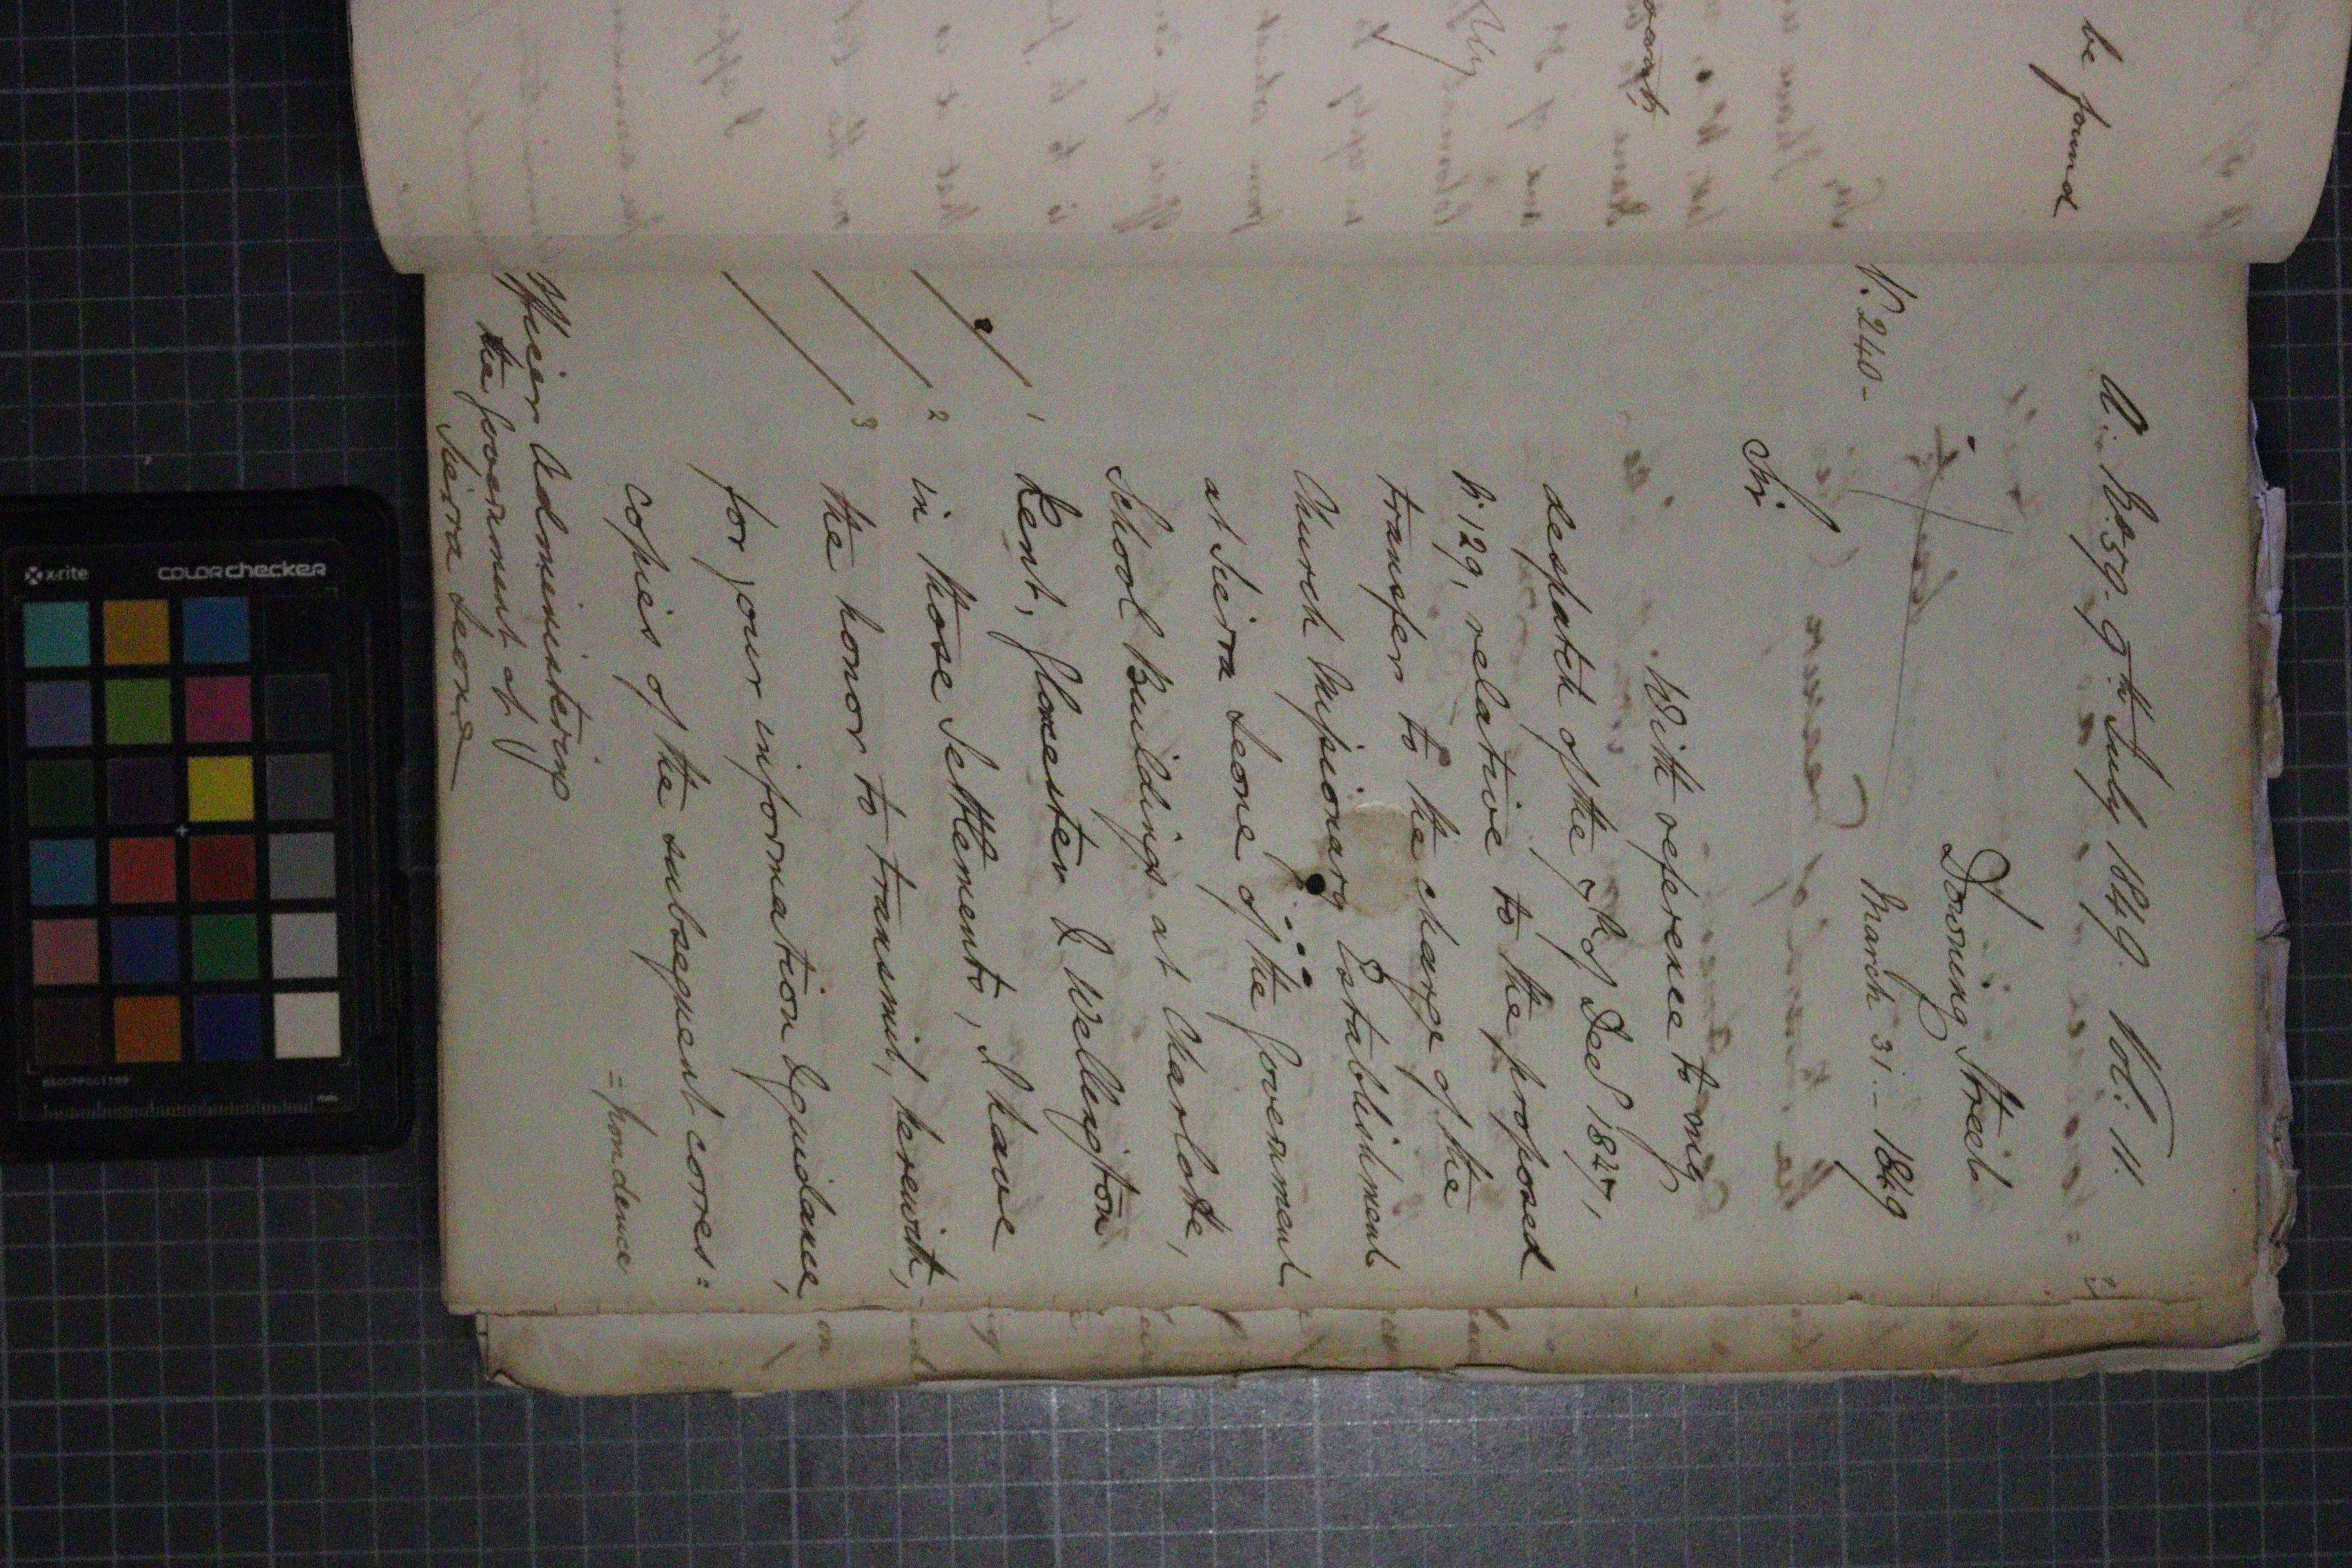 be found
A. No. 59. 9th July 1849. Vol: 11.
Downing Street
No. 240-
March 31 - 1849
Sir
With reference to my
despatch of the 7th of Decr 1847,
No. 129, relative to the proposed
transfer to the charge of the
Church Missionary Establishment
at Sierra Leone of the Government
School Buildings at Charlotte,
1
Kent, Glocester & Wellington
2
in those Settlements, I have
3
the honor to transmit, herewith,
for your information & guidance,
copies of the subsequent corres=
=pondence
Officer Administering
the Government of
Sierra Leone
x-rite
colorchecker